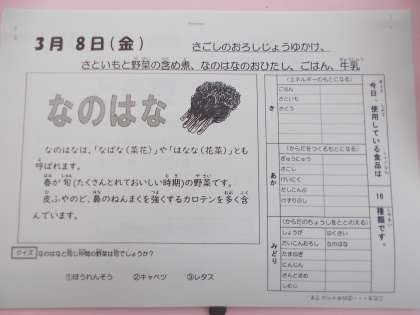 3月 8日(金)
さごしのおろしじょうゆかけ、
さといもと野菜の含め煮、なのはなのおひたし、ごはん、牛乳
なのはな
なのはなは、「なばな(菜花)」や「はなな(花菜)」とも
呼ばれます。
春が旬(たくさんとれておいしい時期)の野菜です。
皮ふやのど、鼻のねんまくを強くするカロテンを多く含
んでいます。
クイズ なのはなと同じ仲間の野菜は何でしょうか?
①ほうれんそう ②キャベツ ③レタス
今日、使用している食品は
16
種類です。
き
(エネルギーのもとになる)
ごはん
さといも
さとう
あか
(からだをつくるもとになる)
ぎゅうにゅう
さごし
けいにく
だしこんぶ
けずりぶし
みどり
(からだのちょうしをととのえる)
しょうが はくさい
だいこんおろし なのはな
たまねぎ
にんじん
さんどまめ
しめじ